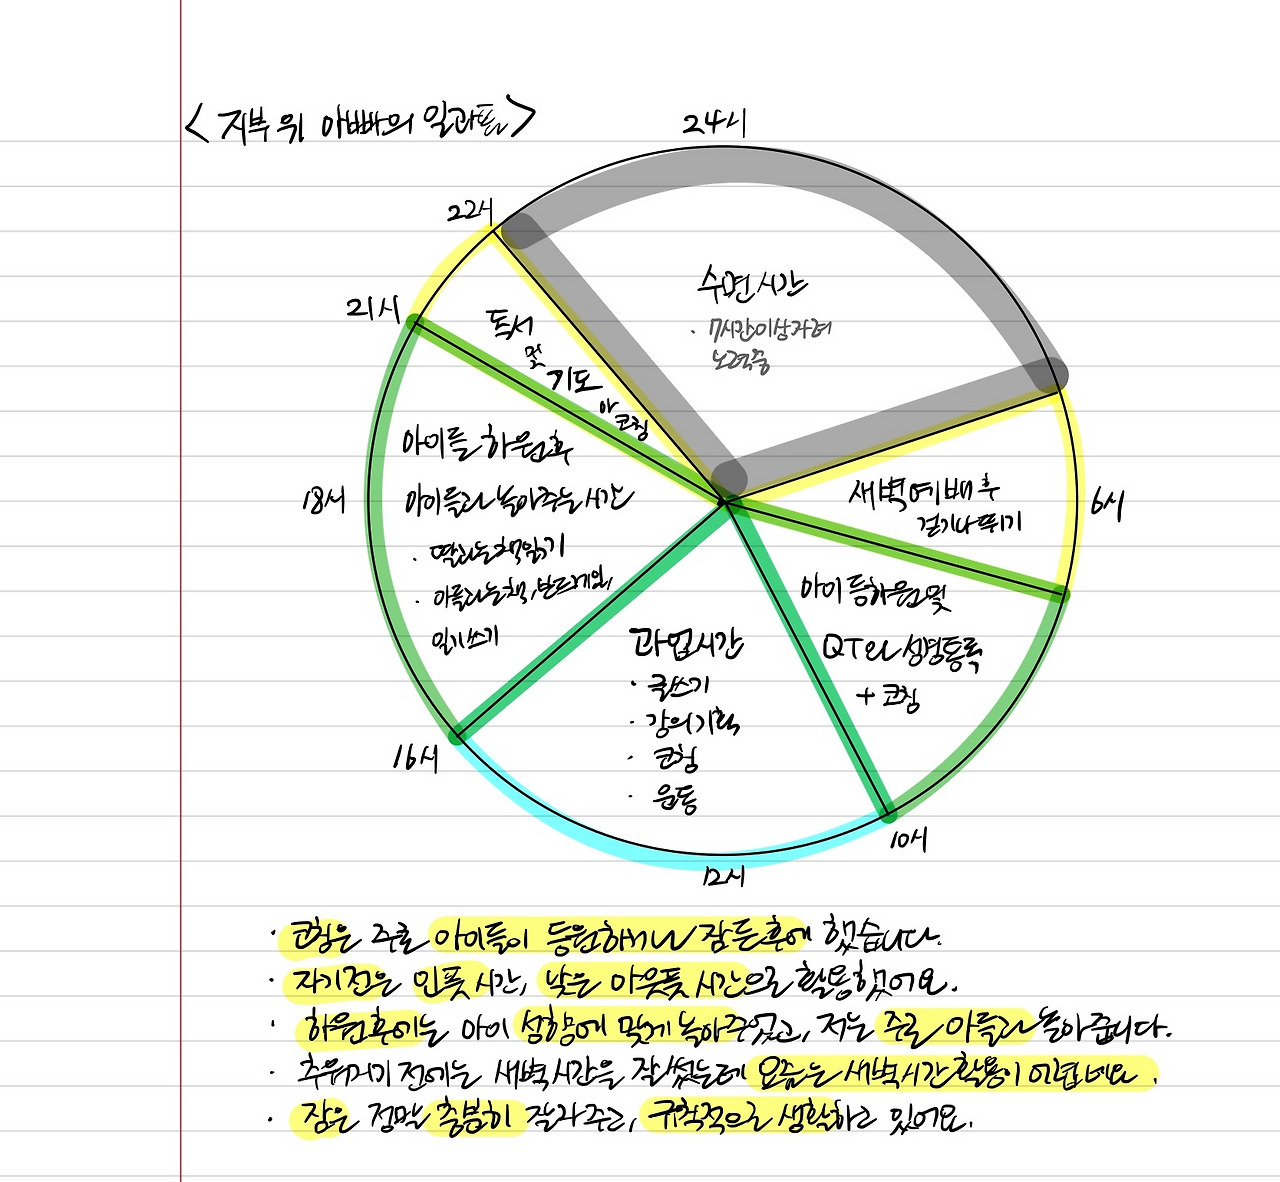 <지부위 아빠의 일과표>
24시
22시
21시
수면시간
· 7시간이상자려
노력중
독서
및
기도
and
코칭
아이들 하원후
아이들과 놀아주는 시간
· 딸과는 책읽기
· 아들과는 책, 보드게임,
일기쓰기
18시
새벽예배 후
걷기나 뛰기
6시
아이 등하원 및
QT and 생명등록
+ 코칭
과업시간
· 글쓰기
· 강의기획
· 코칭
· 운동
16시
10시
12시
· 코칭은 주로 아이들이 등원하거나 잠든후에 했습니다.
· 자기전은 인풋 시간, 낮은 아웃풋 시간으로 활용했어요.
· 하원후에는 아이 성향에 맞게 놀아주었고, 저는 주로 아들과 놀아줍니다.
· 추워지기 전에는 새벽시간을 잘 썼는데 요즘은 새벽시간 활용이 어렵네요.
· 잠은 정말 충분히 잘 자주고, 규칙적으로 생활하고 있어요.